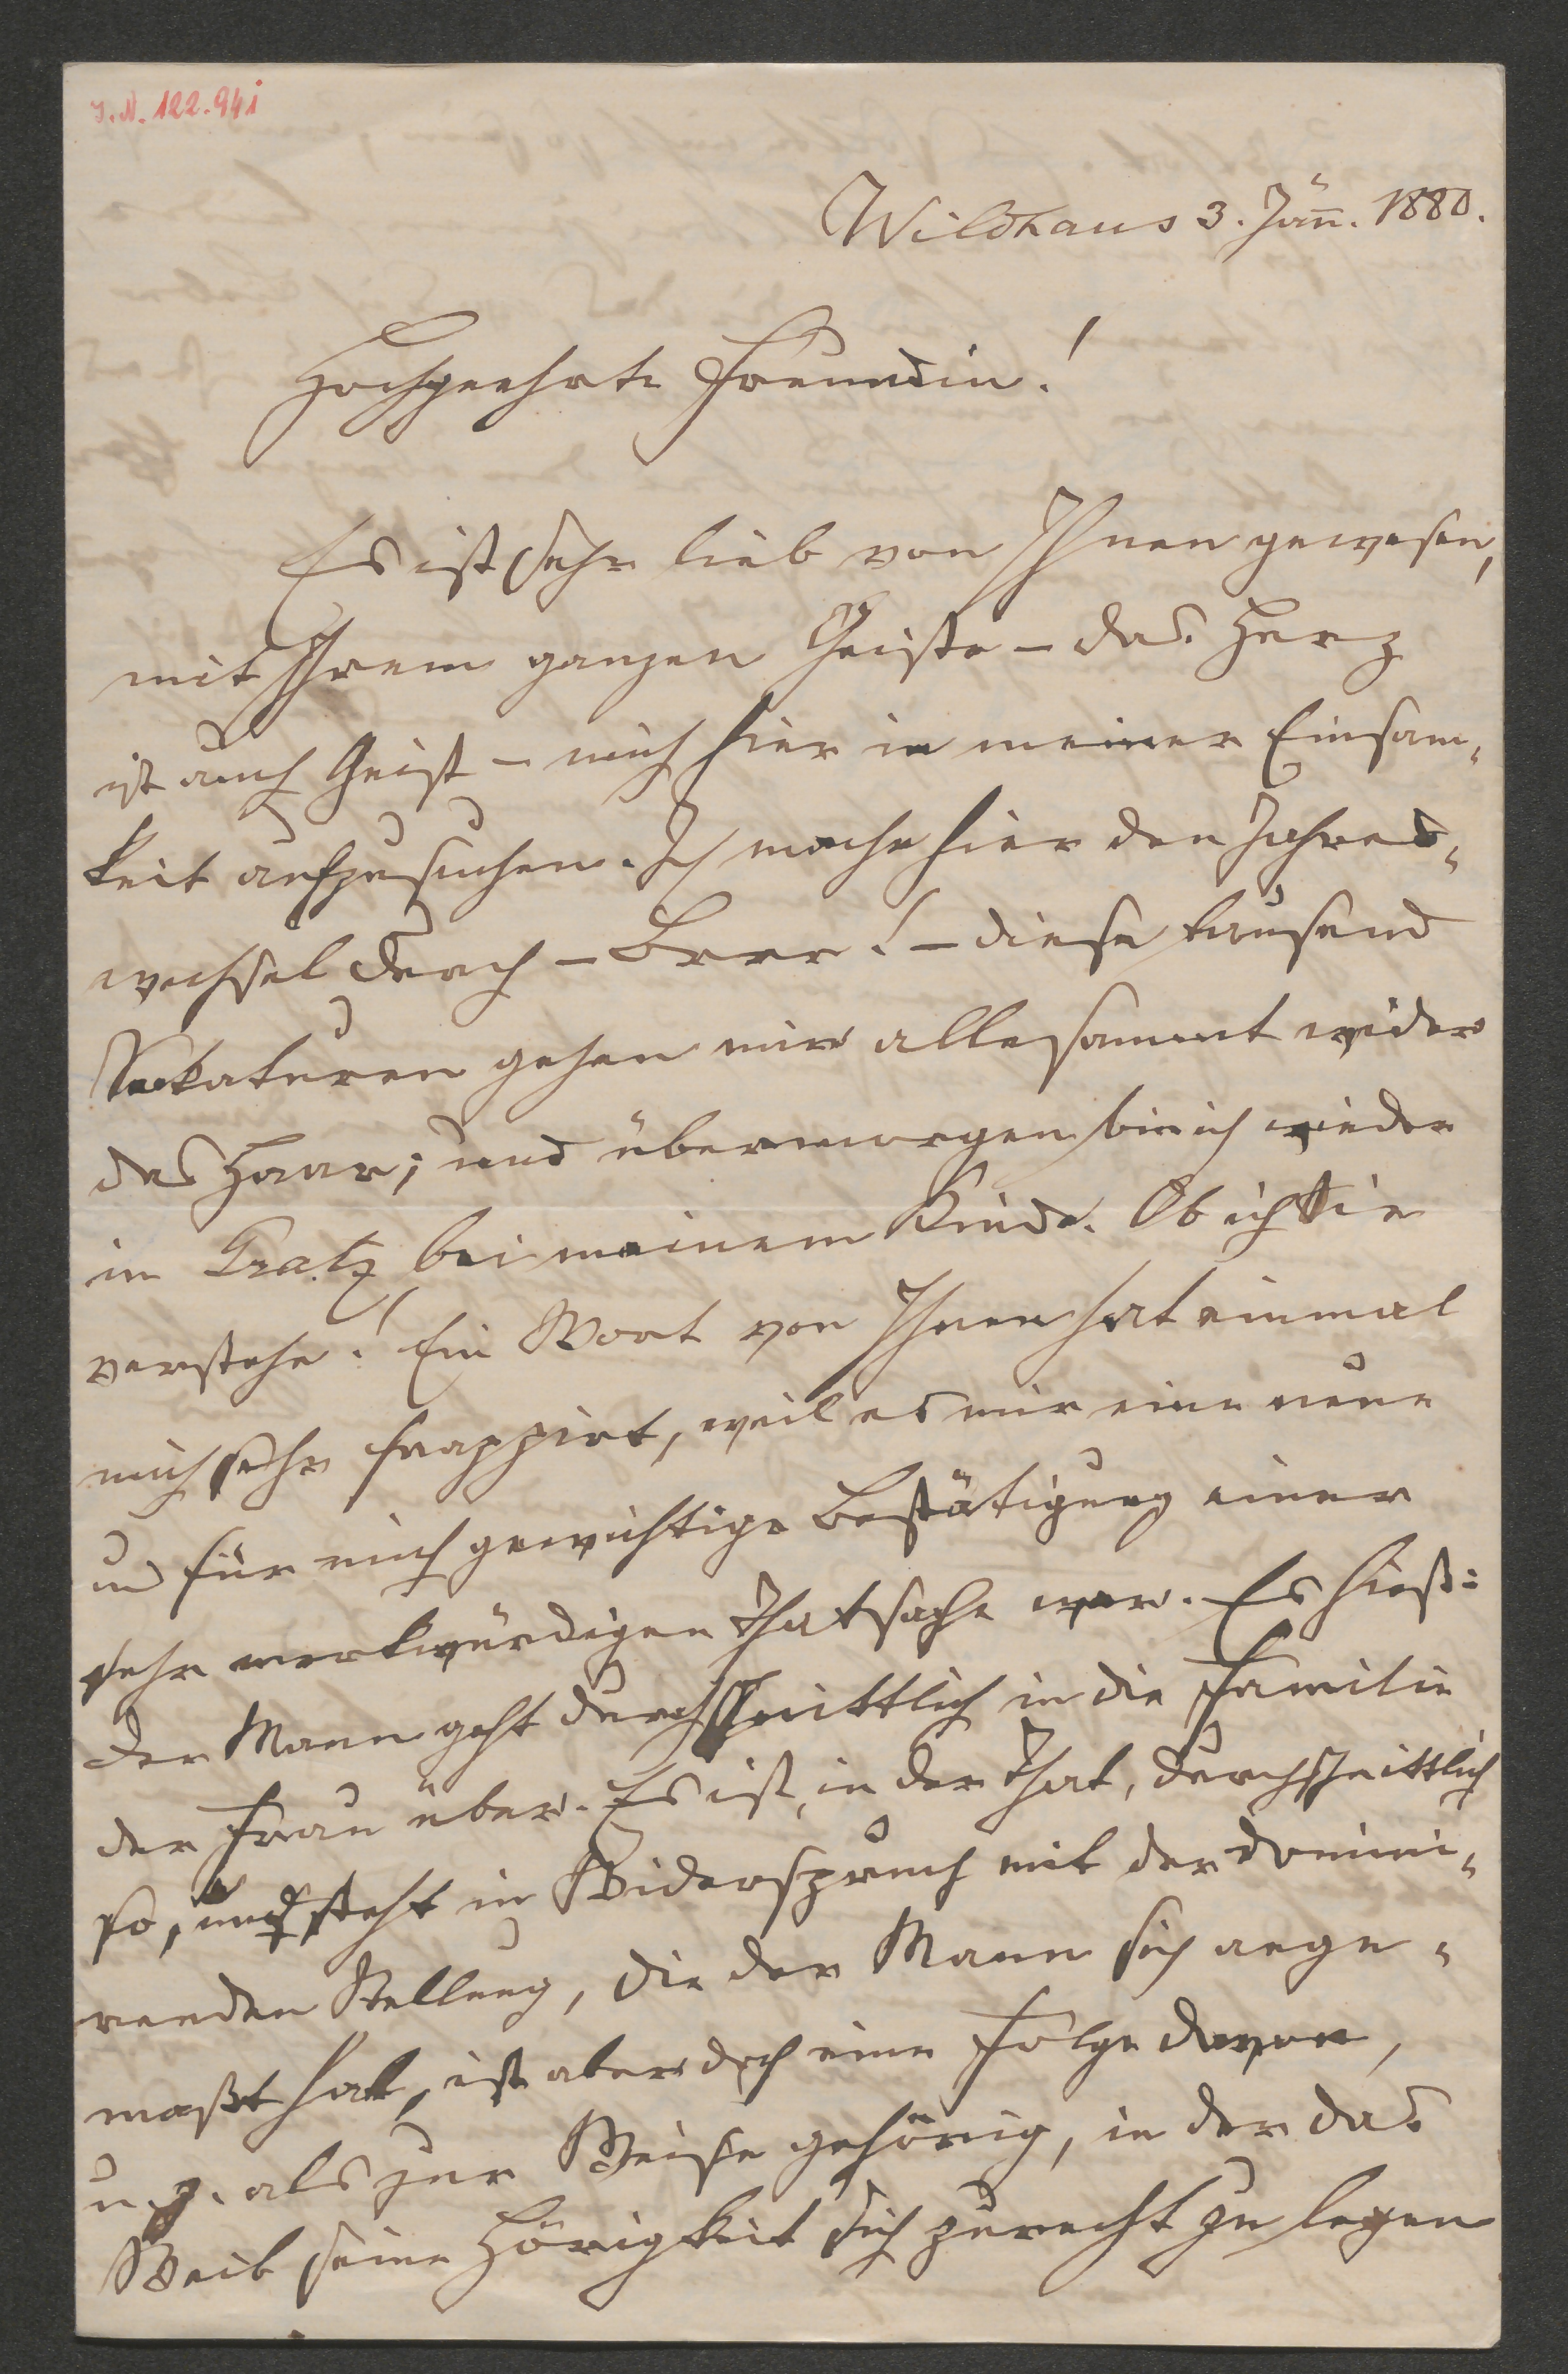 I.N. 122.941
Wildhaus 3. Jän̄. 1880.
Hochgeehrte Freundin!
Es ist sehr lieb von Ihnen gewesen,
mit Ihrem ganzen Geiste – das Herz
ist auch Geist – mich hier in meiner Einsam-
keit aufzusuchen. Ich mache hier den Jahres-
wechsel durch – Brrr! – diese tausend
Sekaturen gehen mir allesammt wider
das Haar; und übermorgen bin ich wieder
in Gratz bei meinem Kinde. Ob ich Sie
verstehe! Ein Wort von Ihnen hat einmal
mich sehr frappirt, weil es mir eine neue
und für mich gewichtige Bestätigung einer
sehr merkwürdigen Thatsache war. Es hieß:
der Mann geht durchschnittlich in die Familie
der Frau über. Es ist, in der That, durchschnittlich
so, und steht in Widerspruch mit der domini-
renden Stellung, die der Mann sich ange-
maßt hat, ist aber doch eine Folge davon,
u. z. als zur Weise gehörig, in der das
Weib seine Hörigkeit sich zurecht zu legen